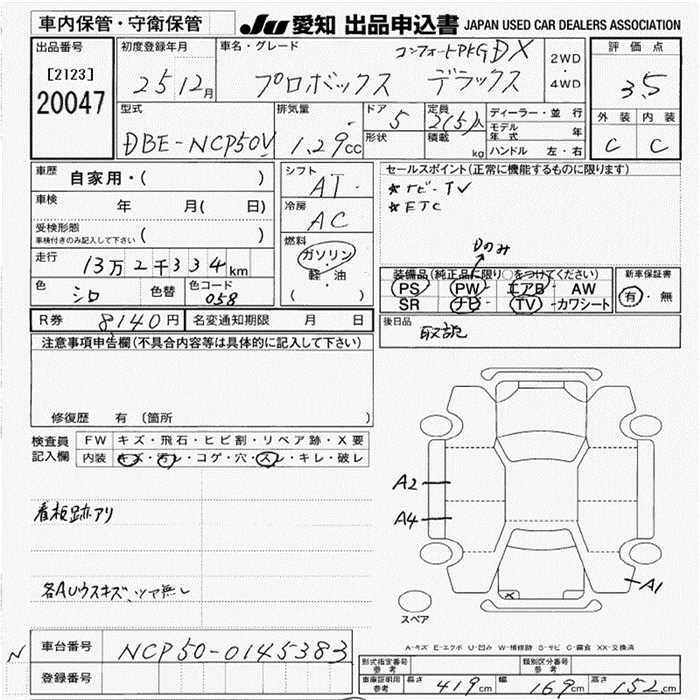 車内保管・守衛保管
JU 愛知 出品申込書 JAPAN USED CAR DEALERS ASSOCIATION
出品番号
[2123]
20047
初度登録年月
25 12月
車名・グレード
コンフォートPKG DX
プロボックス デラックス
2WD
・
4WD
評価点
3.5
外装 内装
C C
型式
DBE-NCP50V
排気量
1.29cc
ドア 5
形状
定員 2(5)人
積載 kg
ディーラー・並行
モデル年式 年
ハンドル 左・右
車歴 自家用・( )
車検 年 月( 日)
受検形態
車検付きのみ記入して下さい ( )
走行 13万2千334km
色 シロ 色替 色コード 058
シフト AT
冷房 AC
燃料
ガソリン
・
軽・油
( )
セールスポイント(正常に機能するものに限ります)
★ナビ・TV
★ETC
Dのみ
装備品(純正品に限り○をつけてください)
PS PW エアB AW
SR ナビ TV カワシート
新車保証書
有・無
R券 8,140円 名変通知期限 月 日
後日品 取説
注意事項申告欄(不具合内容等は具体的に記入して下さい)
修復歴 有 (箇所 )
検査員記入欄
FW キズ・飛石・ヒビ割・リペア跡・X要
内装 キズ・汚レ・コゲ・穴・スレ・キレ・破レ
看板跡アリ
各AUウスキズ、ツヤ無し
A2
A4
A1
×
スペア
A-キズ E-エクボ U-凹み W-補修跡 S-サビ C-腐食 XX-交換済
N
車台番号 NCP50-0145383
登録番号
形式指定番号 参考
類別区分番号 参考
車庫証明用参考 長さ 419cm 幅 169cm 高さ 152cm